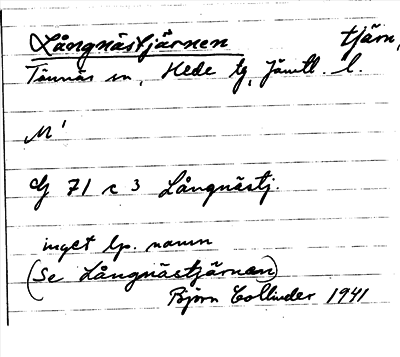 Långnästjärnen tjärn,
Tännäs sn, Hede tg, Jämtl. l.
M'
G 71 c 3 Långnästj.
inget lp. namn
(Se Långnästjärnan)
Björn Collinder 1941